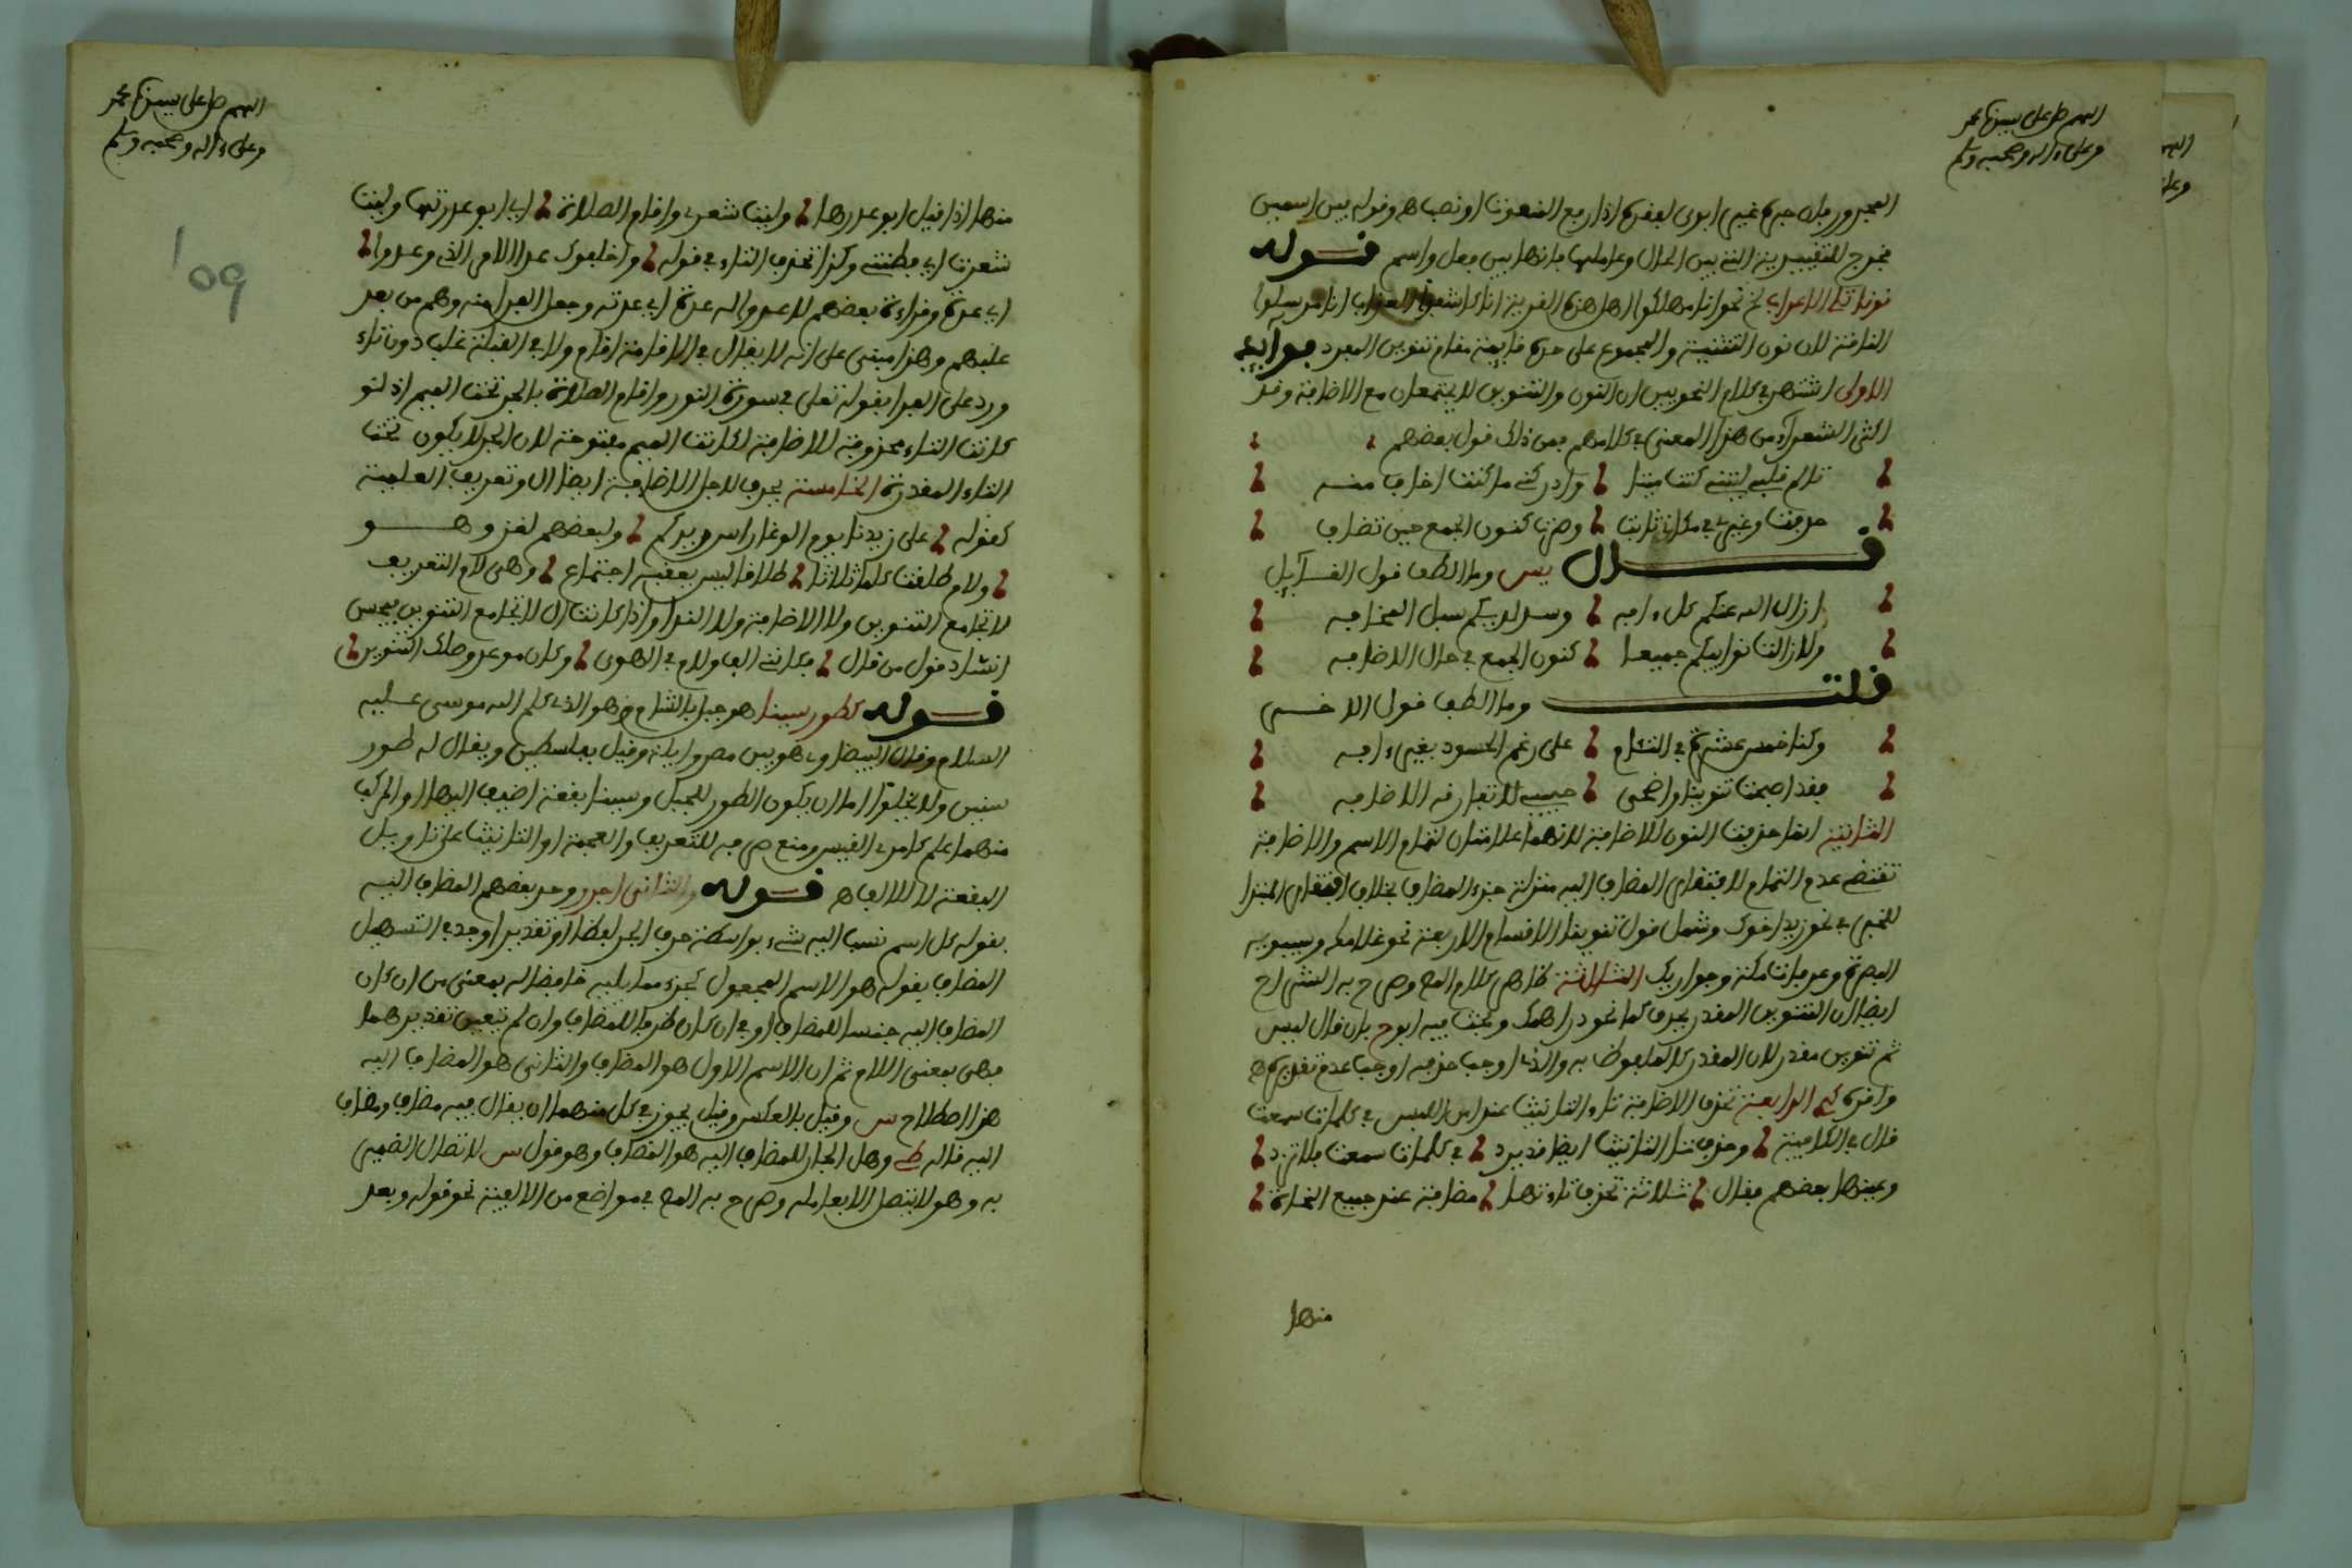 اللهم صل على سيدنا محمد
وعلى ءاله وصحبه وسلم
المجرور فان جره غيره ابوى لفقره اذا ربع المنعوت او نصب اه وقوله بين اسمين
مخرج للتقييدية التي بين الحال وعاملها فانها بين فعل واسم قوله
نونا تلي الاعراب نحو انا مهلكوا اهل هذه القرية انا كاشفوا العذاب انا مرسلوا
الناقة لان نون التثنية والمجموع على حده قايمة مقام تنوين المفرد فوايد
الاولى اشتهر في كلام النحويين ان النون والتنوين لا يجتمعان مع الاضافة وقد
اكثر الشعراء من هذا المعنى في كلامهم فمن ذلك قول بعضهم
تالم قلبي ليتني كنت ميتا وادركني ما كنت اخاف منه
حذفت وغيري في مكان ثابت وصرت كنون الجمع حين تضاف
قال يس وما الطف قول القائل
ازال الله عنكم كل ءافه وسد لديكم سبل المخافه
ولا زالت نوايبكم جميعا كنون الجمع في حال الاضافه
قلت وما الطف قول الاخر
وكنا خمس عشرة في التئام على رغم الحسود بغير ءافه
فقد اصبحت تنوينا واضحى حبيبي لا تفارقه الاضافه
الثانية انما حذفت النون للاضافة لانهما علامتان لتمام الاسم والاضافة
تقتضي عدم التمام لافتقار المضاف اليه منزلة جزء المضاف بخلاف افتقار المبتدا
للخبر في نحو زيد اخوك وشمل قول تنوينا الاقسام الاربعة نحو غلامكم وسيبويه
البصرة وعرفات مكة وجواريك الثالثة ظاهر كلام المص وصرح به الشراح
ايضا ان التنوين المقدر يحذف كما نحو دراهمك وبحث فيه ابوح بان قال ليس
ثم تنوين مقدر لان المقدر كالملفوظ به والذي اوجب حذفه اوجب عدم تقديره اه
واقره الرابعة تحذف الاضافة تاء التانيث عند امن اللبس في كلمات سمعت
قال في الكافية وحذف تا التانيث ايضا قد يرد في كلمات سمعت فلا تزد
وعينها بعضهم فقال ثلاثة تحذف تاءتها مضافة عند جميع النحاة
منها
اللهم صل على سيدنا محمد
وعلى ءاله وصحبه وسلم
109
منها اذا قيل ابو عذرها وليت شعري واقام الصلاة اي ابو عذرتها وليت
شعرتي اي فطنتي وكذا تحذف التاء في قوله واخلفوك عد الامر الذي وعدوا
اي عدة وقراءة بعضهم لاعدوا له عدة اي عدته وجعل الفرا منه وهم من بعد
غلبهم وهذا مبني على انه لا يقال في الاقامة اقام ولا في الغلبة غلب دون تاء
ورد على الفرا بقوله تعلى في سورة النور واقام الصلاة بالجر تحت الميم اذ لو
كانت التاء محذوفة للاضافة لكانت الميم مفتوحة لان الجر لا يكون تحت
التاء المقدرة الخامسة يحذف لاجل الاضافة ايضا ال وتعريف العلمية
كقوله على زيدنا يوم الوغا راس زيدكم ولبعضهم لغز وهو
ولام طلقت كلما ثلاثا طلاقا ليس يعقبه اجتماع وهي لام التعريف
لا تجامع التنوين ولا الاضافة ولا الندا واذا كانت ال لا تجامع التنوين فيحسن
انشاد قول من قال فكانني الف ولام في الهوى وكان موعد وصلك التنوين
قوله كطور سينا هو جبل بالشام وهو الذي كلم الله موسى عليه
السلام وقال البيضاوي هو بين مصر وايلة وقيل بفلسطين ويقال له طور
سنين ولا يخلوا اما ان يكون الطور للجبل وسينا بقعة اضيف اليها او المركب
منهما علم كامرئ القيس ومنع صرفه للتعريف والعجمة او التانيث على تاويل
البقعة لا للالف اه قوله والثاني اجرر وحد بعضهم المضاف اليه
بقوله كل اسم نسب اليه شيء بواسطة حرف الجر لفظا او تقديرا وحد في التسهيل
المضاف بقوله هو الاسم المجعول كجزء مما يليه خافضا له بمعنى من ان كان
المضاف اليه جنسا للمضاف او في ان كان ظرفا للمضاف وان لم تتعين تقديرهما
فهي بمعنى اللام ثم ان الاسم الاول هو المضاف والثاني هو المضاف اليه
هذا اصطلاح س وقيل بالعكس وقيل يجوز في كل منهما ان يقال فيه مضاف ومضاف
اليه قاله ط وهل الجار للمضاف اليه هو المضاف وهو قول س لاتصال الضمير
به وهو لا يتصل الا بعامله وصرح به المص في مواضع من الالفية نحو قوله وبعد